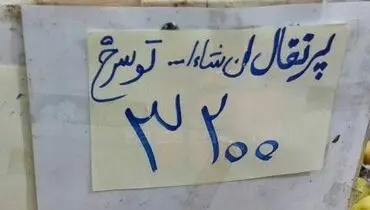 پرتقال ان شاءا... توسرخ
۳۲۰۰